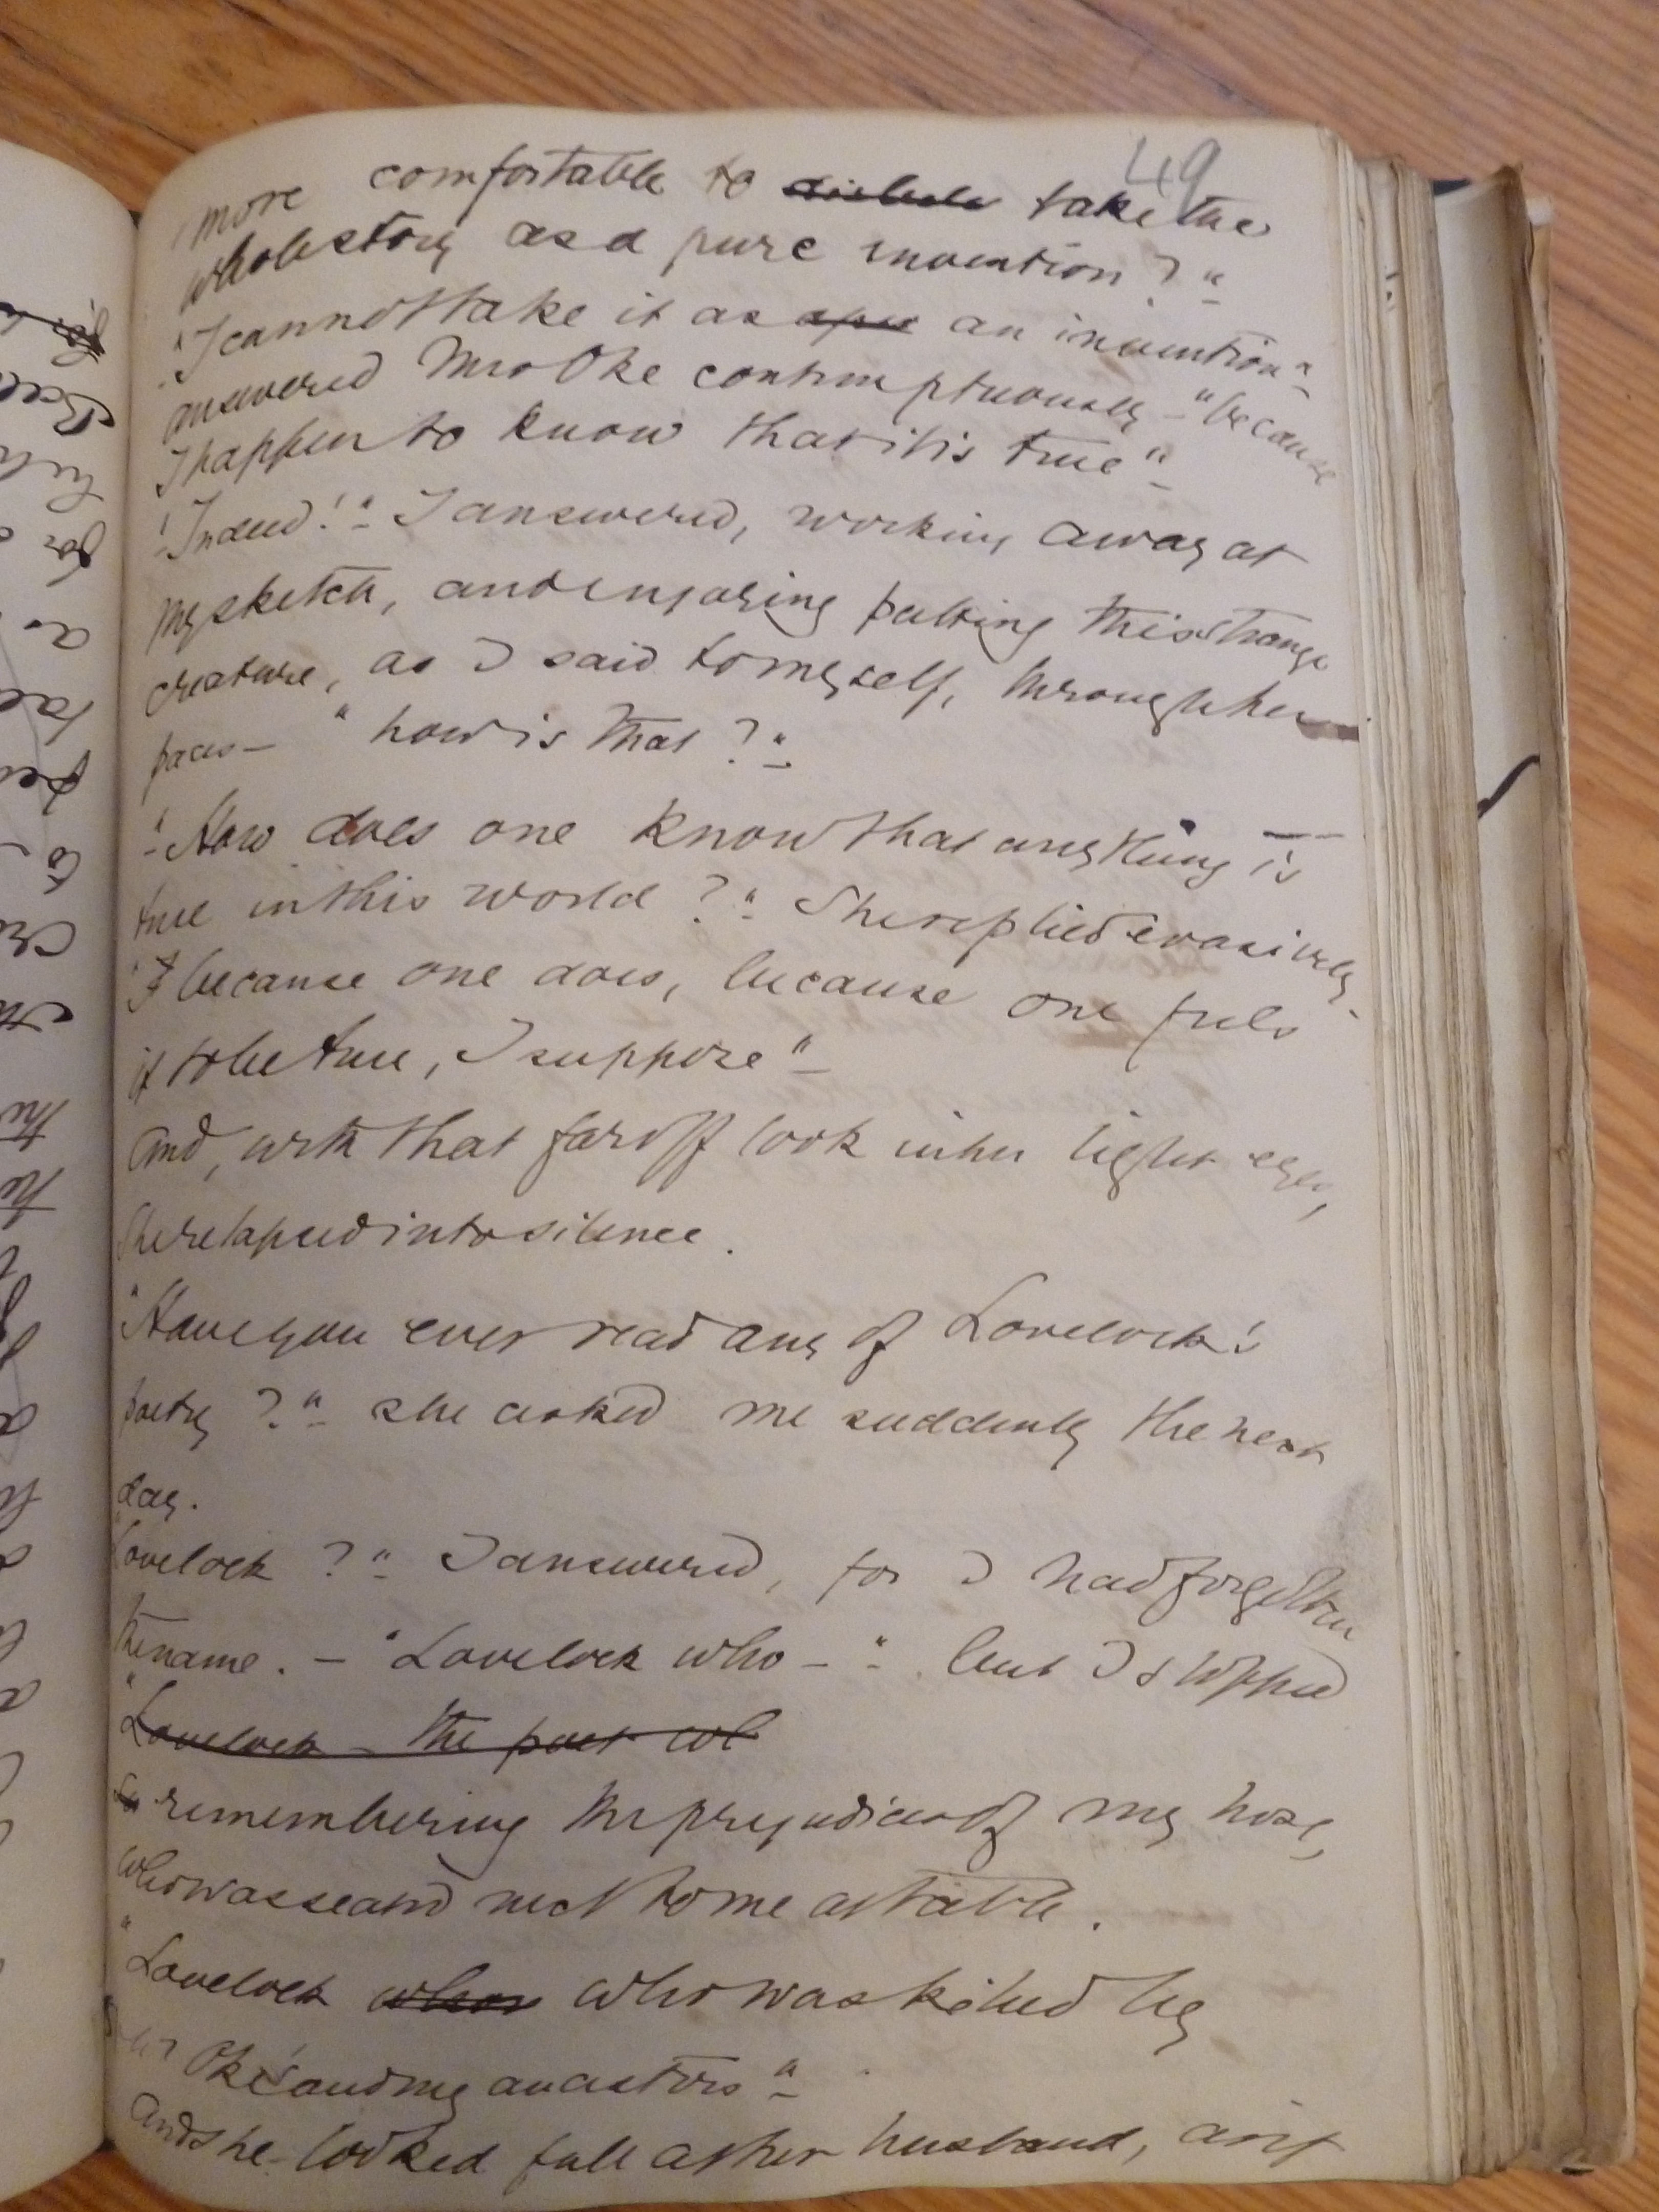 49
more comfortable to disbele take the
whole story as a pure invention?"
"I cannot take it as a pu an invention"
answered Mrs Oke contemptuously – "because
I happen to know that it is true"
"Indeed!" I answered, working away at
my sketch, and enjoying putting this strange
creature, as I said to myself, through her
paces – "how is that?"
"How does one know that anything is
true in this world?" She replied evasively.
"because one does, because one feels
it to be true, I suppose"
And, with that far off look in her light eyes,
She relapsed into silence.
"Have you ever read any of Lovelock's
poetry?" she asked me suddenly the next
day.
Lovelock?" I answered, for I had forgotten
the name. – "Lovelock who –" but I stopped
"Lovelock – the poet wh
remembering the prejudices of my host,
who was seated next to me at table.
"Lovelock whom who was killed by
Mr Oke's and my ancestors"
And she looked full at her husband, as if